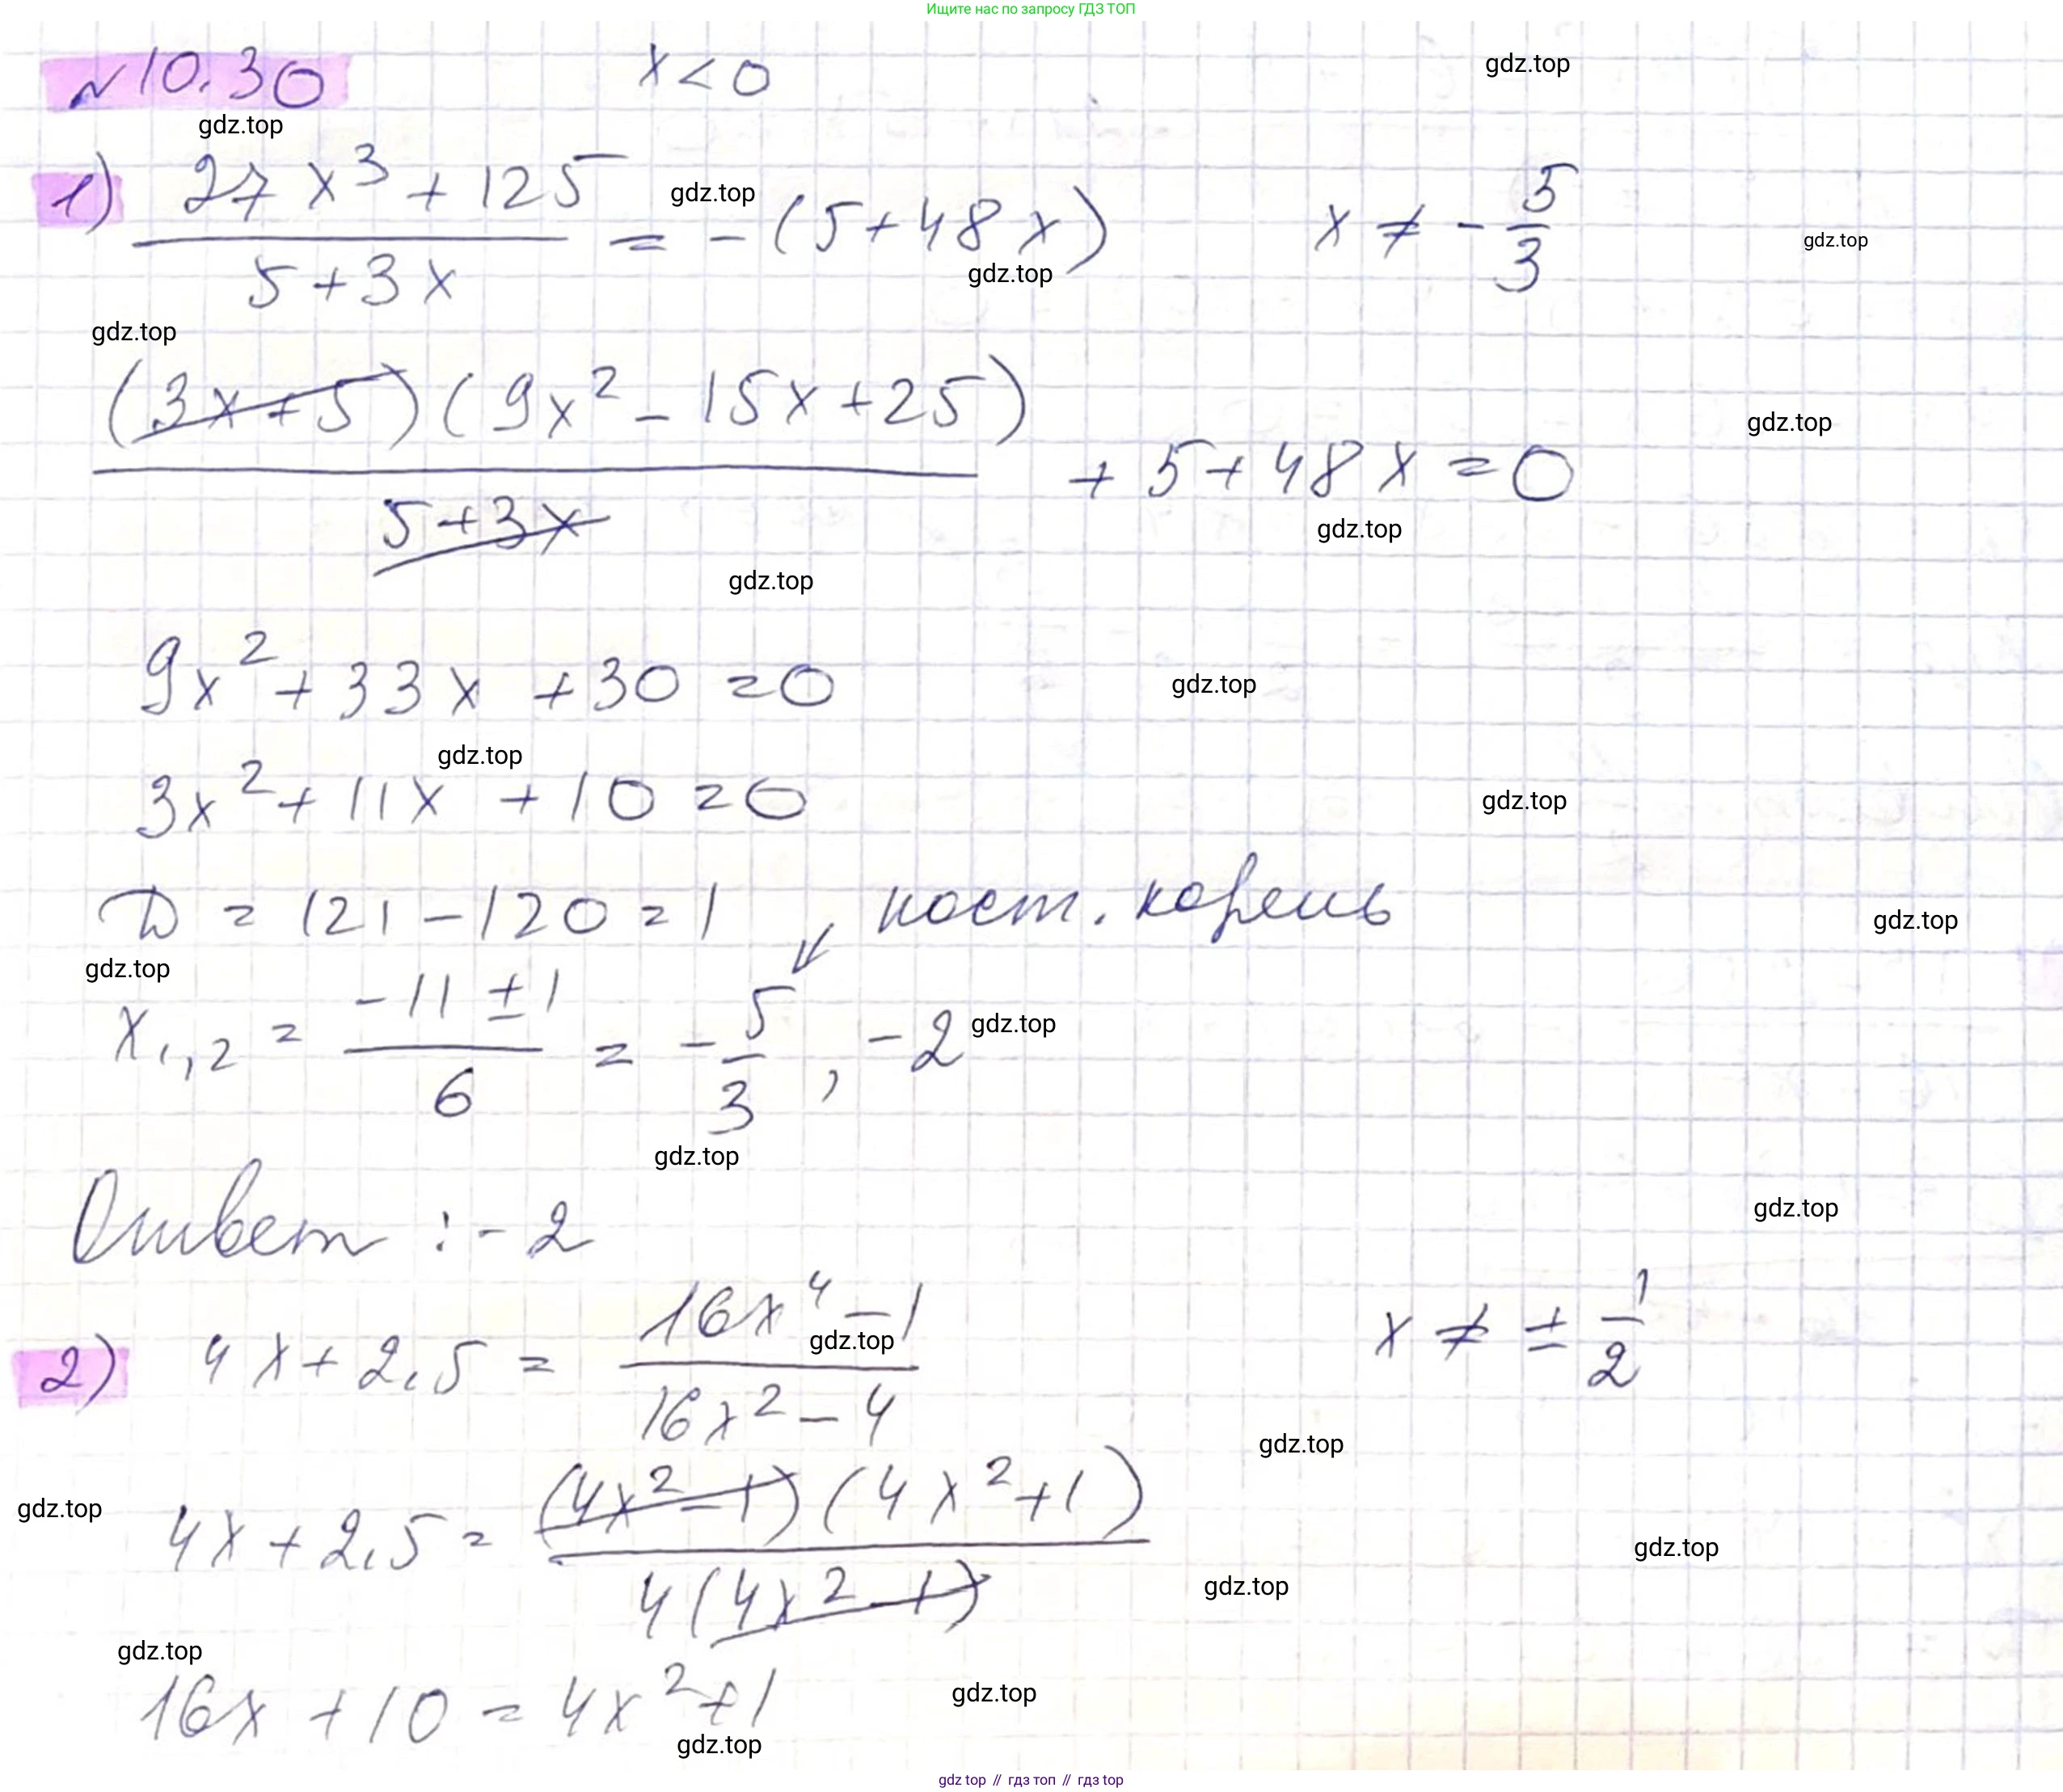 Ищите нас по запросу ГДЗ ТОП
№10.30 x < 0
gdz.top
gdz.top
1) (27x³ + 125)/(5 + 3x) = -(5 + 48x) x ≠ -5/3
gdz.top
gdz.top
gdz.top
gdz.top
((3x + 5)(9x² - 15x + 25))/(5 + 3x) + 5 + 48x = 0
gdz.top
gdz.top
gdz.top
9x² + 33x + 30 = 0
gdz.top
gdz.top
3x² + 11x + 10 = 0
gdz.top
D = 121 - 120 = 1 пост. корень
gdz.top
gdz.top
x₁,₂ = (-11 ± 1)/6 = -5/3, -2
gdz.top
gdz.top
Ответ: -2
gdz.top
2) 4x + 2,5 = (16x⁴ - 1)/(16x² - 4) x ≠ ± 1/2
gdz.top
gdz.top
gdz.top
4x + 2,5 = ((4x² - 1)(4x² + 1))/(4(4x² - 1))
gdz.top
gdz.top
gdz.top
16x + 10 = 4x² + 1
gdz.top
gdz.top
gdz top // гдз топ // gdz top